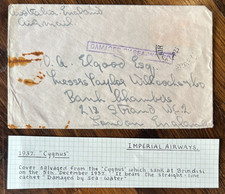 Australia-England
Air mail
DAMAGED BY SEA-WATER
O. A. Elgood Esq
Messrs Taylor Willcocks & Co
Bank Chambers
218 Strand W.C.2
London
IMPERIAL AIRWAYS.
1937. "Cygnus"
Cover salvaged from the "Cygnus" which sank at Brindisi
on the 5th. December 1937. It bears the straight-line
cachet "Damaged by Sea-water"